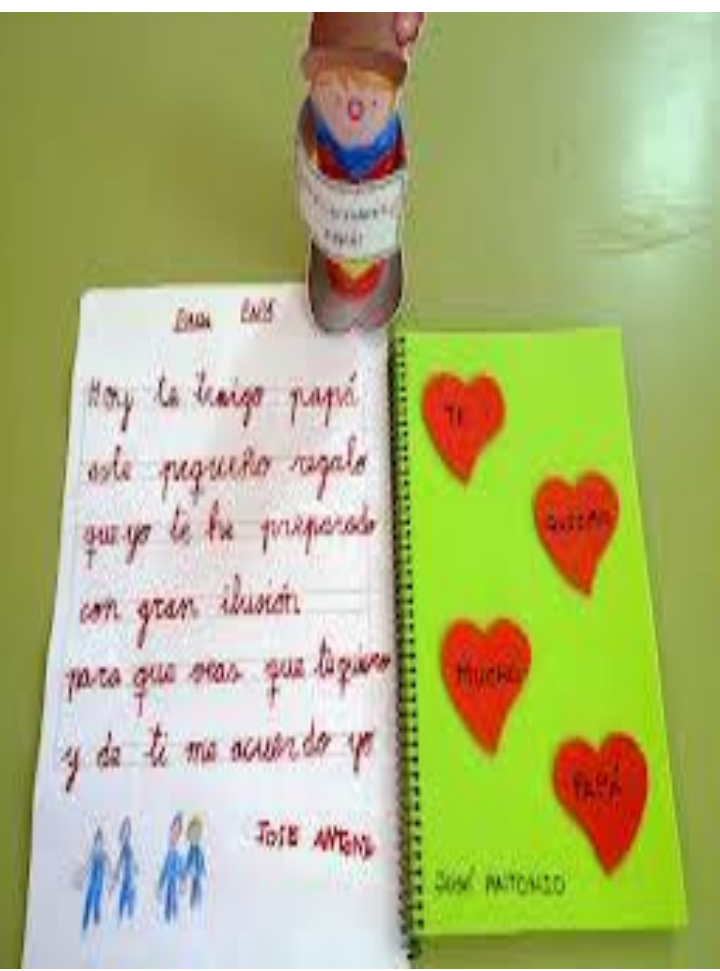 Hoy te traigo papá
este pequeño regalo
que yo te he preparado
con gran ilusión
para que veas que te quiero
y de ti me acuerdo yo
JOSE ANTONIO
TE
QUIERO
MUCHO
PAPÁ
JOSÉ ANTONIO